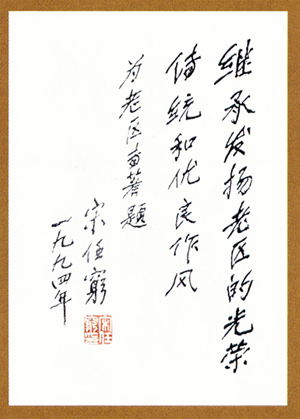 继承发扬老区的光荣
傳统和优良作风
为老区著题
宋任窮
一九九四年